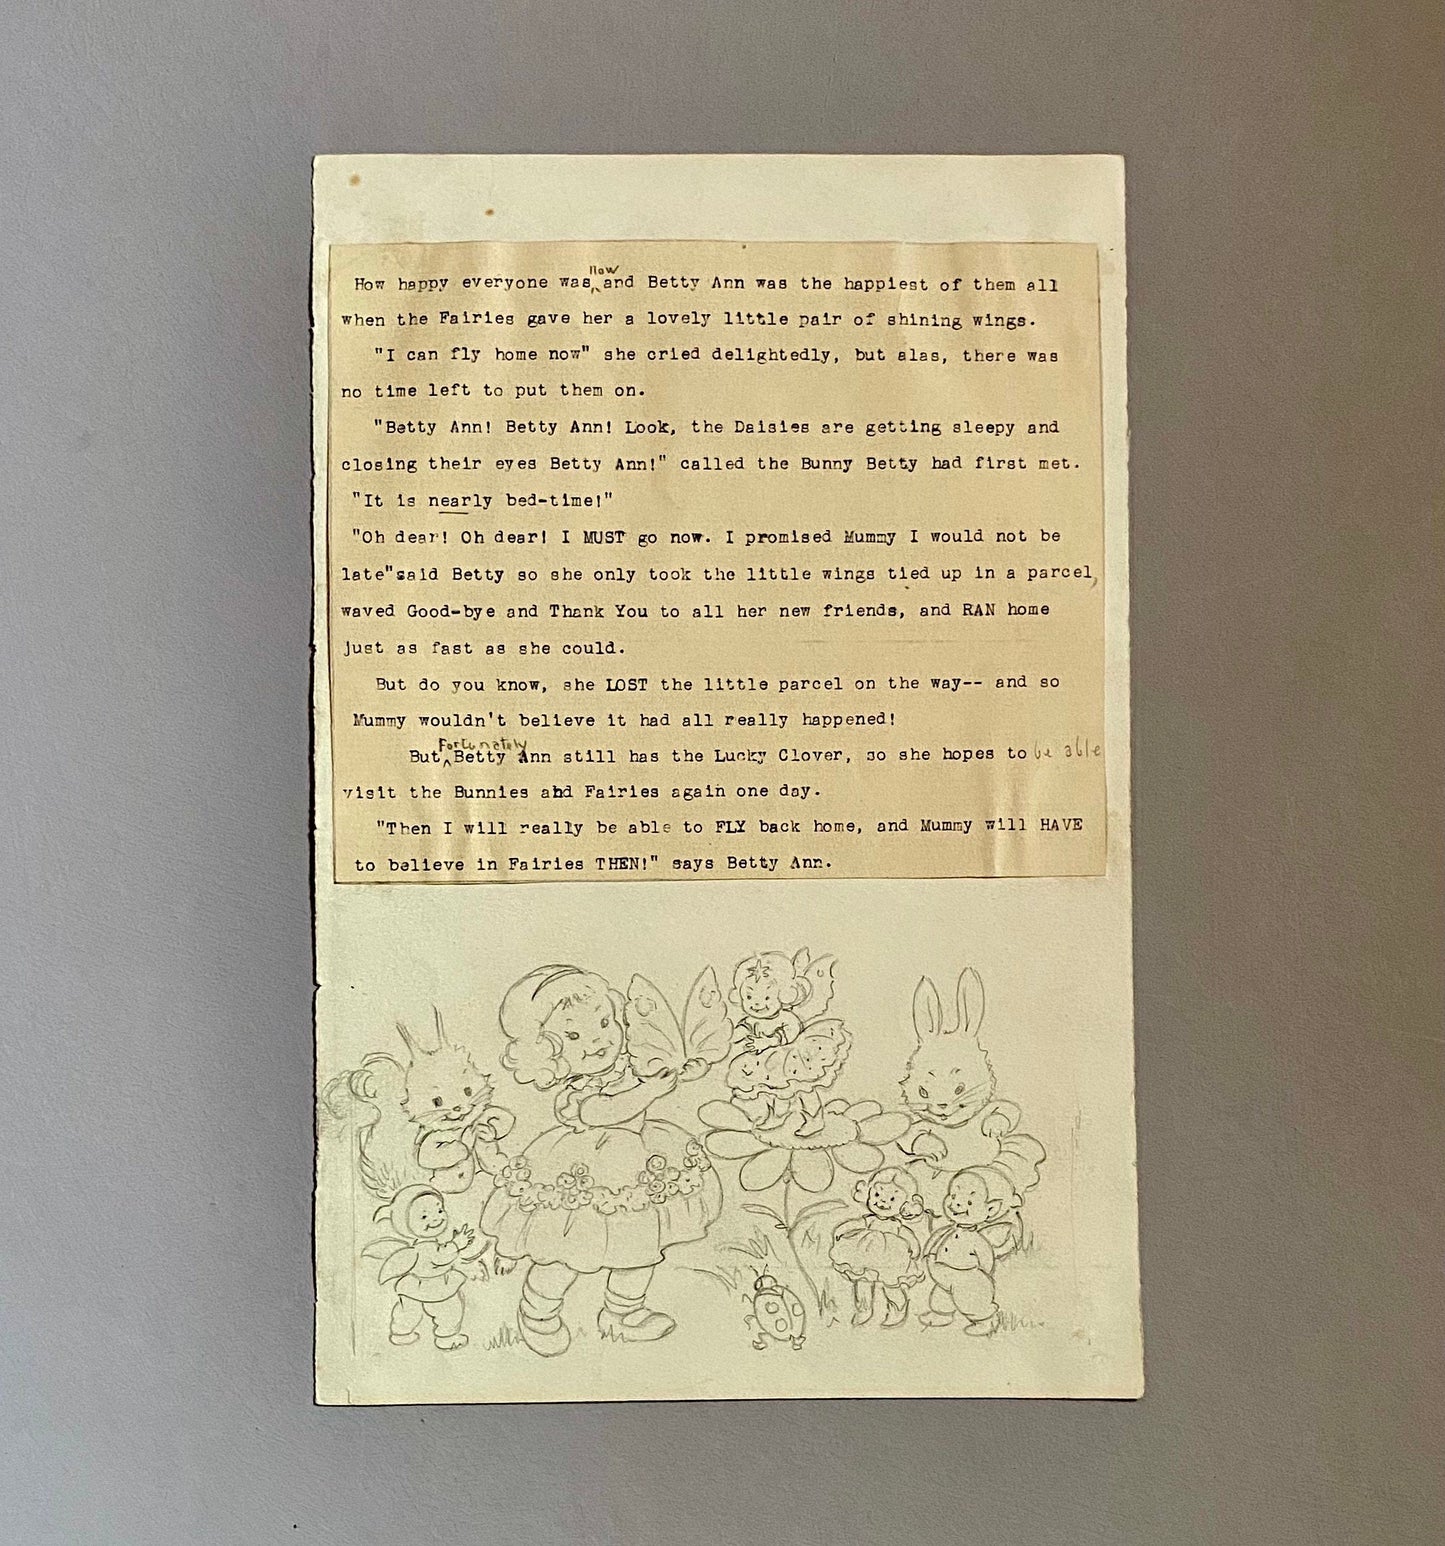 How happy everyone was now and Betty Ann was the happiest of them all
when the Fairies gave her a lovely little pair of shining wings.
"I can fly home now" she cried delightedly, but alas, there was
no time left to put them on.
"Betty Ann! Betty Ann! Look, the Daisies are getting sleepy and
closing their eyes Betty Ann!" called the Bunny Betty had first met.
"It is nearly bed-time!"
"Oh dear! Oh dear! I MUST go now. I promised Mummy I would not be
late"said Betty so she only took the little wings tied up in a parcel,
waved Good-bye and Thank You to all her new friends, and RAN home
just as fast as she could.
But do you know, she LOST the little parcel on the way-- and so
Mummy wouldn't believe it had all really happened!
But Fortunately Betty Ann still has the Lucky Clover, so she hopes to be able
visit the Bunnies ahd Fairies again one day.
"Then I will really be able to FLY back home, and Mummy will HAVE
to believe in Fairies THEN!" says Betty Ann.